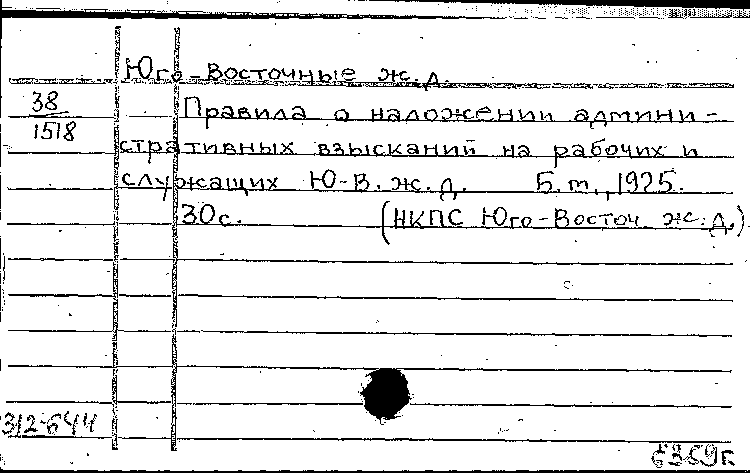 Юго-Восточные ж.д.
38
1518
Правила о наложении админи-
стративных взысканий на рабочих и
служащих Ю-В.ж.д. Б.т., 1925.
30с. (НКПС Юго-Восточ. ж.д.)
312-644